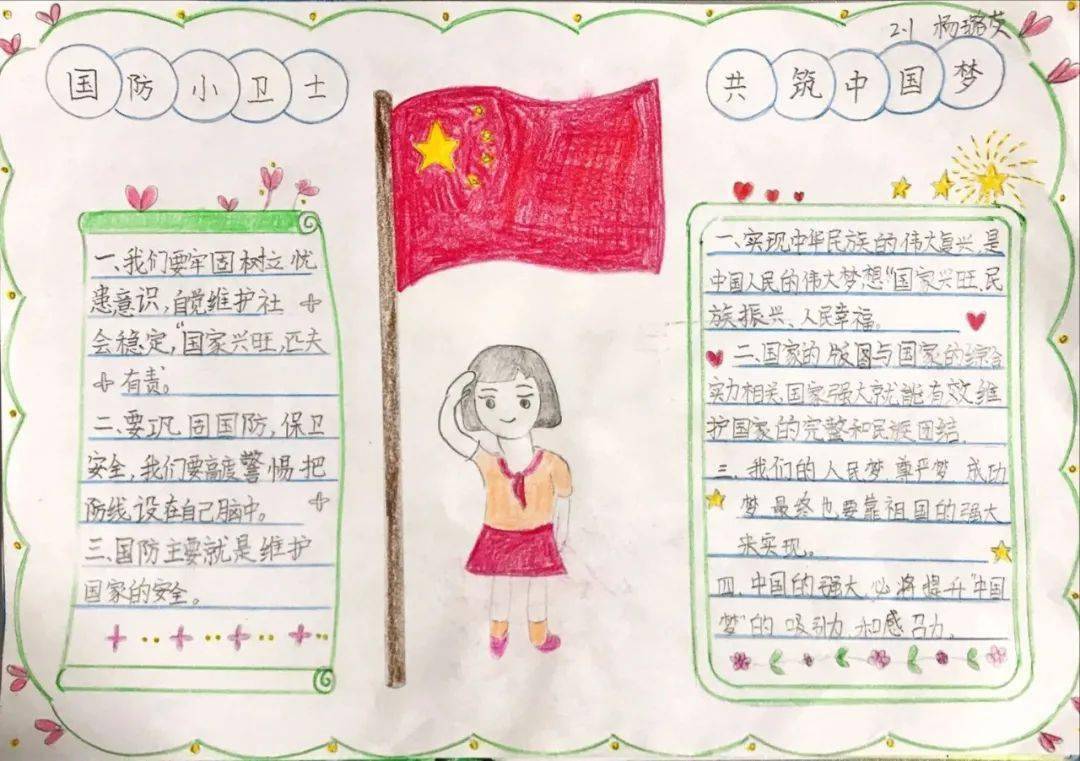 2.1 杨璐茨
国防小卫士
共筑中国梦
一、我们要牢固树立忧
患意识,自觉维护社
会稳定,“国家兴旺,匹夫
有责。
二、要巩固国防,保卫
安全,我们要高度警惕,把
防线设在自己脑中。
三、国防主要就是维护
国家的安全。
一、实现中华民族的伟大复兴,是
中国人民的伟大梦想“国家兴旺、民
族振兴、人民幸福。
二、国家的版图与国家的综合
实力相关,国家强大就能有效维
护国家的完整和民族团结.
三、我们的人民梦.尊严梦 成功
梦 最终也要靠祖国的强大
来实现。
四、中国的强大必将提升“中国
梦”的吸引力和感召力。